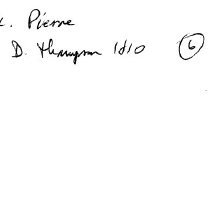 . Pierre
D. Thompson 1d10 6